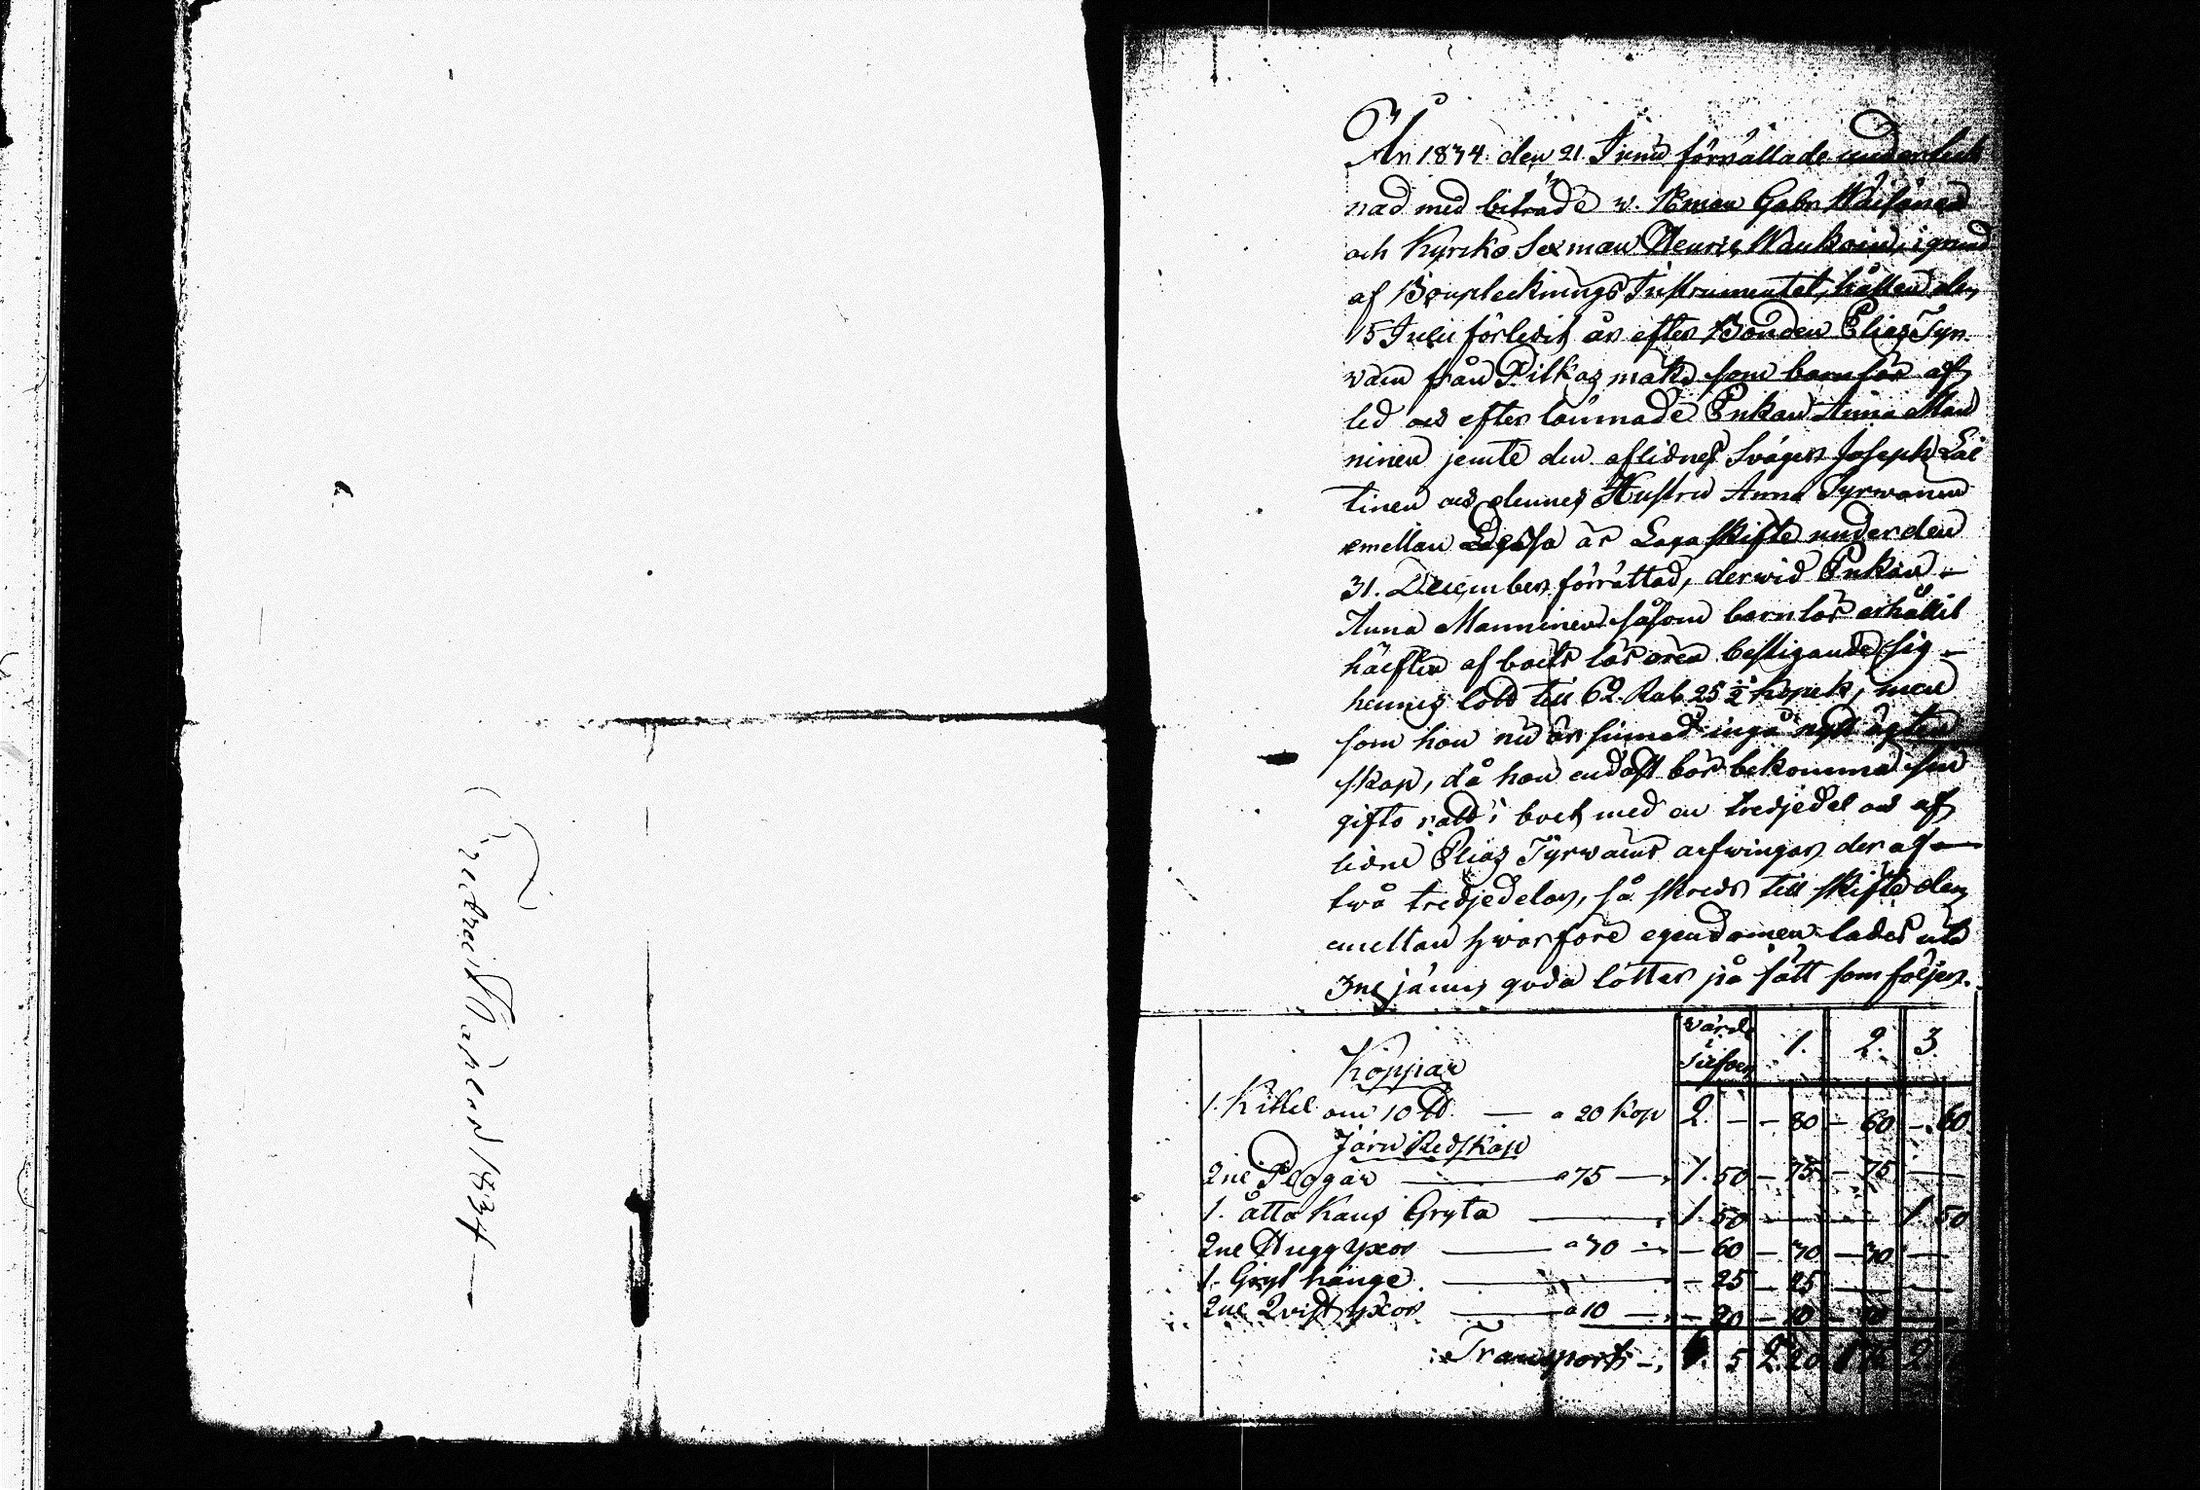 År 1834 den 21 Junii förrättade underteck
nad med biträde w. Nämdeman Gabr Wäisänen
och Kyrko Sexman Henric Waukonen, i grund
af Bouptecknings Instrumentet, hållen den
15 Julii förledit år efter Bonden Elias Tyr
vain från Pilkas måki som barnlös af
led och efter lämnade Enkan Anna Man
ninen jemte den aflidnes Svåger Joseph Lai
tinen och dennes Hustru Anna Tyrwainen
emellan Lagskifte under den
31. December förrättad, derwid Enkan
Anna Manninen såsom barnlös erhållit
hälften af boets lösören bestigande sig
hennes lott till 62. Rub. 25 ½ kopek, men
som hon nu är sinnad ingå nytt ägten
skap, då hon endast bör bekomma sin
gifto rätt i boet med en tredjedel och af
lidne Elias Tyrwains arfwingar deraf
två tredjedelar, så skreds till skifte dem
emellan hwarföre egendomen lades uti
3ne jämn goda lotter på sätt som följer.
värde i Silfver 1. 2. 3.
Koppar
1. Kittel om 10 ℔ — a 20 kop 2. — — 80 — 60 — 60
Järn Redskap
2ne Peggar — a 75 — 1. 50 — 75 — 75 —
1. åtta kans Gryta — 1. 50 — — 1. 50
2ne Hugg yxor — a 30 — — 60 — 30 — 30 —
1. Gryt hänge — — 25 — 25 — —
2ne Qvist yxor — a 10 — — 20 — 10 — 10 —
Transport — 6. 5 2. 20 1. 75 2. 10
1834